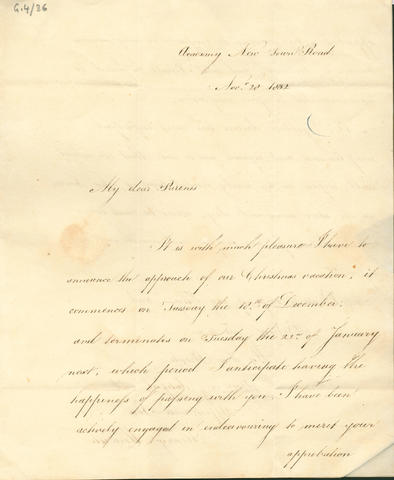 G.4/26
Academy New Town Road
Novr. 20 1832
My dear Parents
It is with much pleasure I have to
announce the approach of our Christmas vacation, it
commences on Tuesday the 18th. of December,
and terminates on Tuesday the 22nd of January
next, which period I anticipate having the
happiness of passing with you. I have been
actively engaged in endeavouring to merit your
approbation